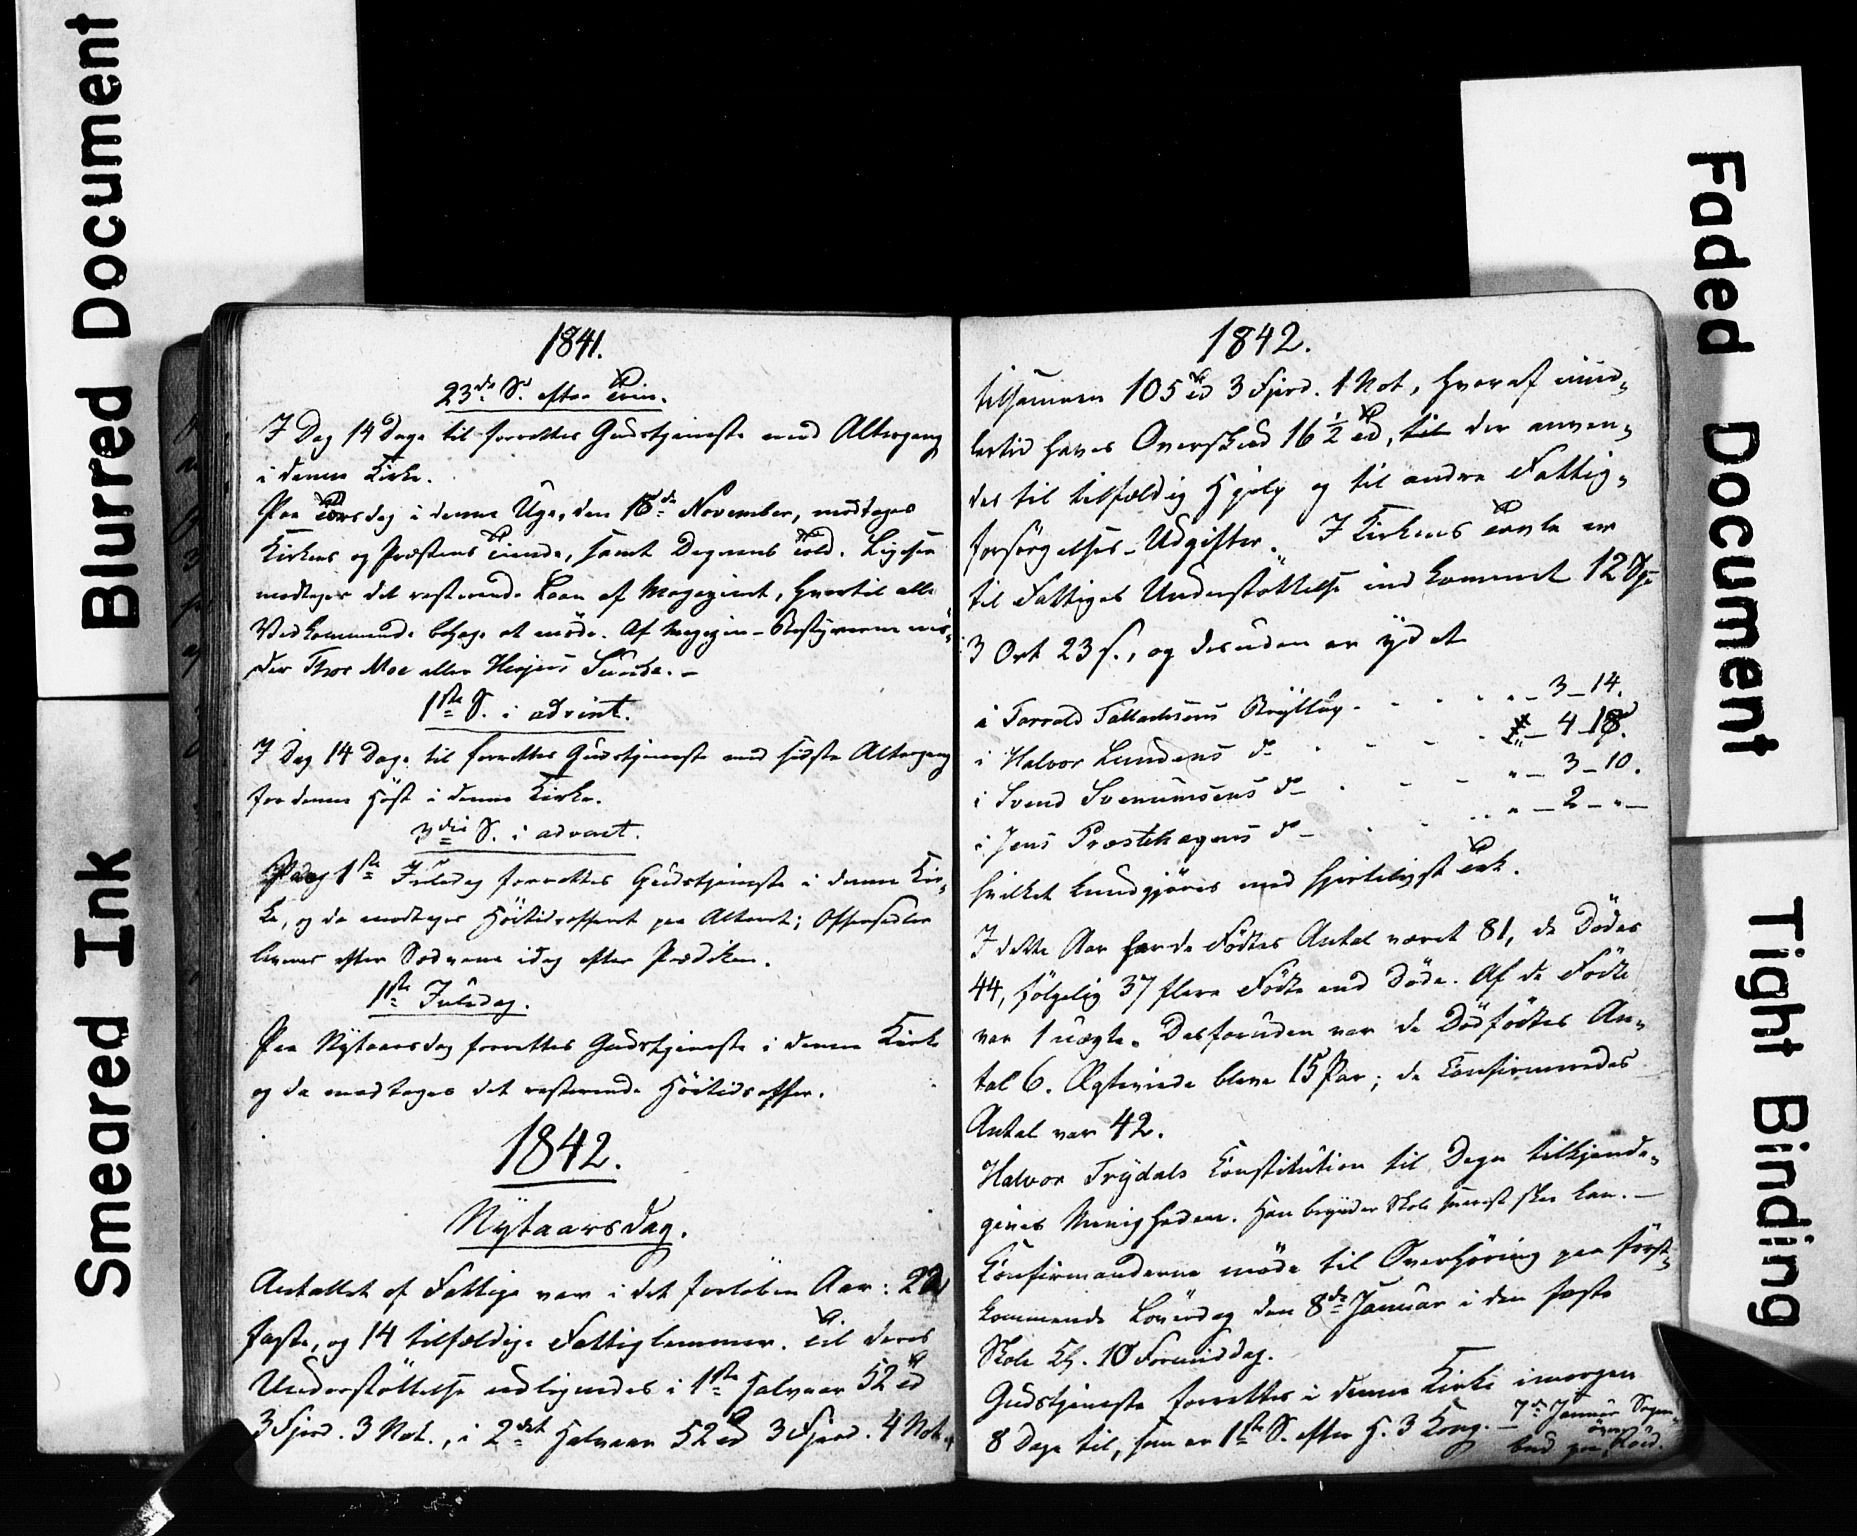 Blurred Document
Smeared Ink
1841.
23de S. efter Trin.
I Dag 14 Dage til forrettes Gudstjeneste med Altergang
i denne Kirke.
Paa Torsdag i denne Uge, den 18de November, modtages
Kirkens og Præstens Tiende, samt Degnens Told. Ligesaa
modtages det resterende Laan af Magazinet, hvortil alle
Vedkommende behage at møde. Af Magazin-Bestyrerne mö-
der Thor Moe eller Sunde.
1ste S. i advent.
I Dag 14 Dage til forrettes Gudstjeneste med sidste Altergang
for denne Höst i denne Kirke.
3die S. i advent.
Paa 1ste Juledag forrettes Gudstjeneste i denne Kir-
ke, og da modtages Höitidsofferet paa Alteret; Offersedler
leveres efter Sædvane idag efter Prædiken.
1ste Juledag.
Paa Nytaarsdag forrettes Gudstjeneste i denne Kirke
og da modtages det resterende Höitidsoffer.
1842.
Nytaarsdag.
Antallet af Fattige var i det forløbne Aar: 22
faste, og 14 tilfældige Fattiglemmer. Til deres
Understöttelse udlignedes i 1ste Halvaar 52 Td
3 Fjerd. 3 Not., i 2det Halvaar 52 Td 3 Fjerd. 4 Not.
1842.
tilsammen 105 Td 3 Fjerd. 1 Not, hvoraf imid-
lertid haves Overskud 16 1/2 Td, til der anven-
des til tilfældig Hjelp og til andre Fattig-
forsörgelses-Udgifter. I Kirkens Tavle er
til Fattiges Understöttelse indkommet 12 Spd
3 Ort 23 s., og desuden er ydet
i Torvald Tallachsens Bryllup - - - „ - 3 - 14.
i Halvor Lundens do - - - „ - 4 - 18.
i Svend Svenumsens do - - - „ - 3 - 10.
i Jens Præstehagens do - - - „ - 2 - „ -
hvilket kundgjöres med hjerteligst Tak.
I dette Aar har de Födtes Antal været 81, de Dödes
44, fölgelig 37 flere Födte end Döde. Af de Födte
var 1 uægte. Desforuden var de Dödfödtes An-
tal 6. Ægteviede bleve 15 Par; de Confirmeredes
Antal var 42.
Halvor Trydals Constitution til Degn tilkjende-
gives Menigheden. Han begynder Skole snarest skee kan. -
Confirmanderne möde til Overhöring paa först-
kommende Löverdag den 8de Januar i den faste
Skole Kl. 10 Formiddag.
Gudstjeneste forrettes i denne Kirke imorgen
8 Dage til, som er 1ste S. efter H. 3 Kong. - 7de Januar Sogne-
bud paa Röed.
Faded Document
Tight Binding